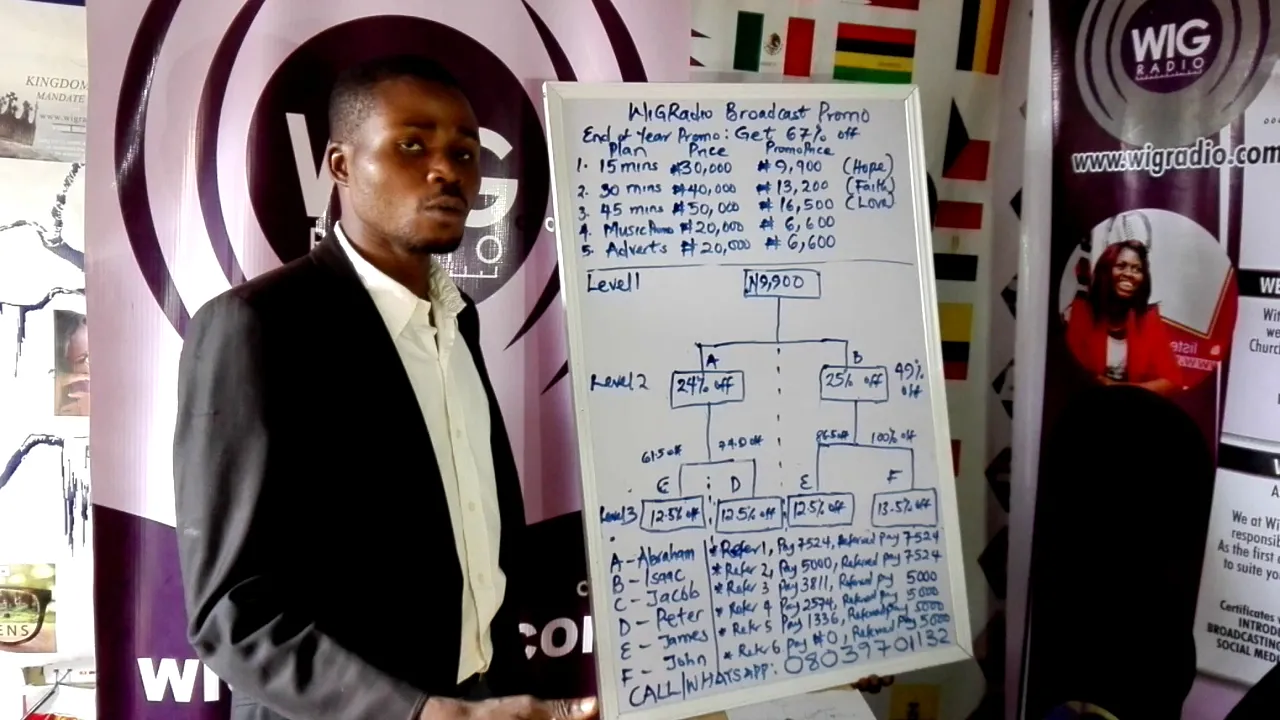 KINGDOM
MANDATE
WIG
WiGRadio Broadcast Promo
End of Year Promo: Get 67% off
Plan Price Promo Price
1. 15 mins ₦30,000 ₦9,900 (Hope)
2. 30 mins ₦40,000 ₦13,200 (Faith)
3. 45 mins ₦50,000 ₦16,500 (Love)
4. Music Promo ₦20,000 ₦6,600
5. Adverts ₦20,000 ₦6,600
Level 1 ₦9,900
A B
Level 2 24% off 25% off 49% off
61.5 off 74.0 off 86.5 off 100% off
C D E F
Level 3 12.5% off 12.5% off 12.5% off 13.5% off
A - Abraham * Refer 1, Pay 7524, Referred pay 7524
B - Isaac * Refer 2, Pay 5000, Referred pay 7524
C - Jacob * Refer 3 Pay 3811, Referred pay 5000
D - Peter * Refer 4 Pay 2574, Referred pay 5000
E - James * Refer 5 Pay 1336, Referred pay 5000
F - John * Refer 6 Pay ₦0, Referred pay 5000
CALL/WHATSAPP: 08039701132
WIG
RADIO
www.wigradio.com
WE
Church
We at Wi
responsib
As the first
to suite you
Certificates
INTROD
BROADCASTING
SOCIAL MED
ENS